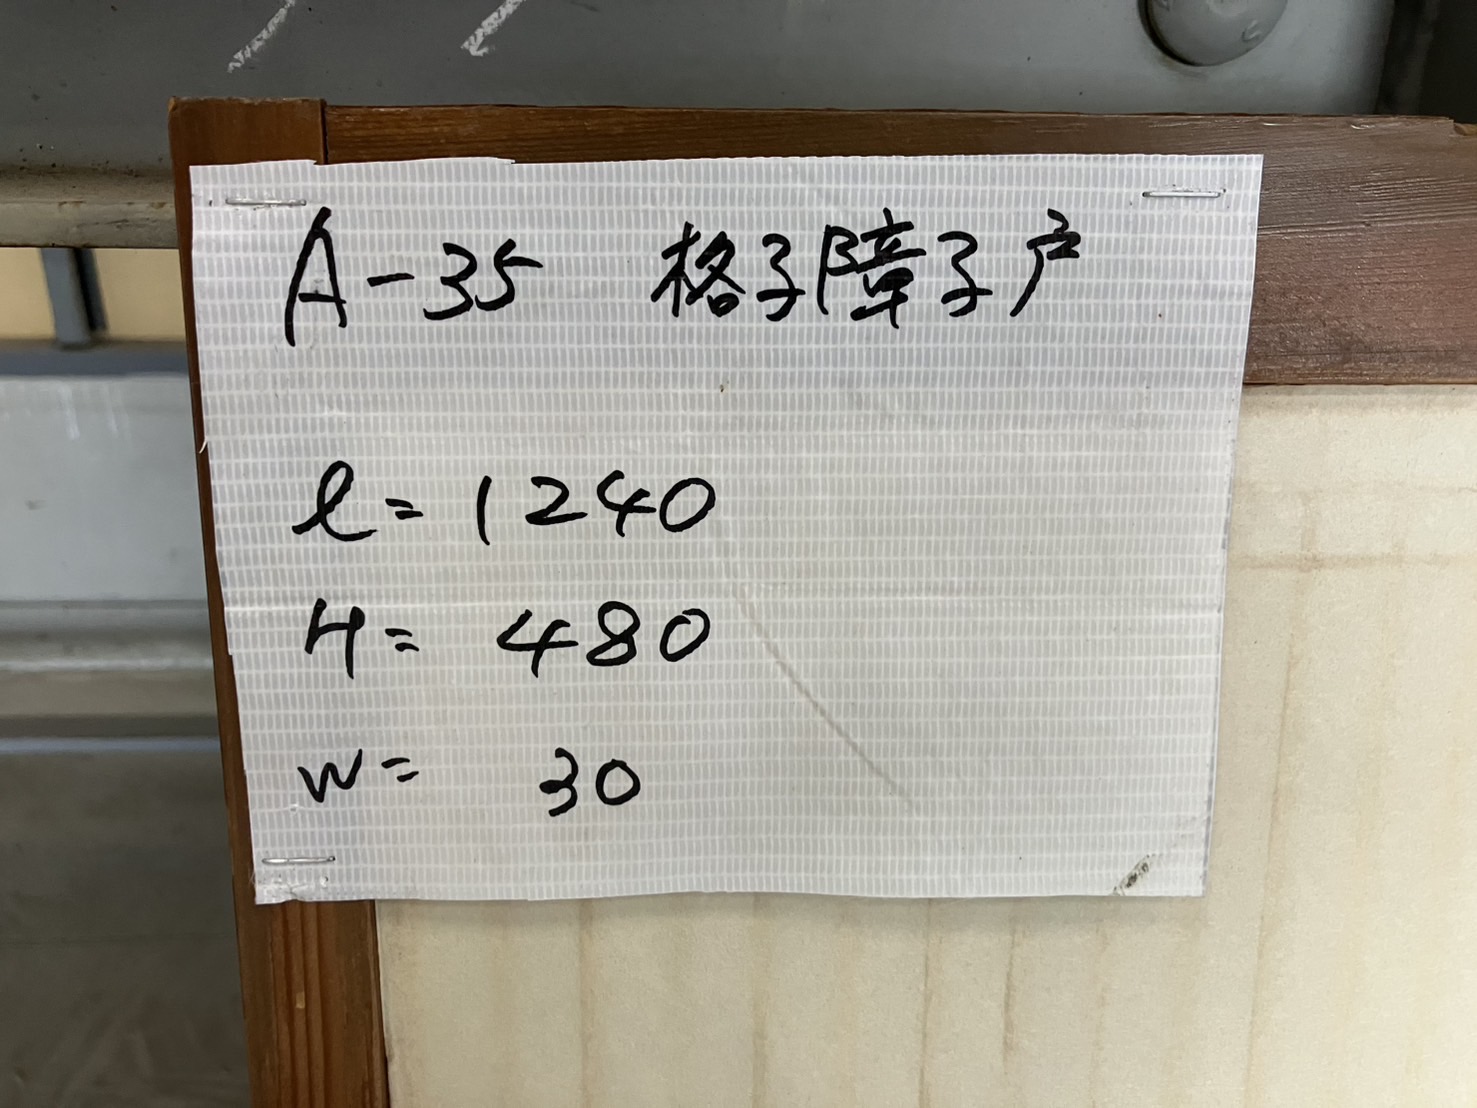 A-35 格子障子戸
l=1240
H=480
W=30